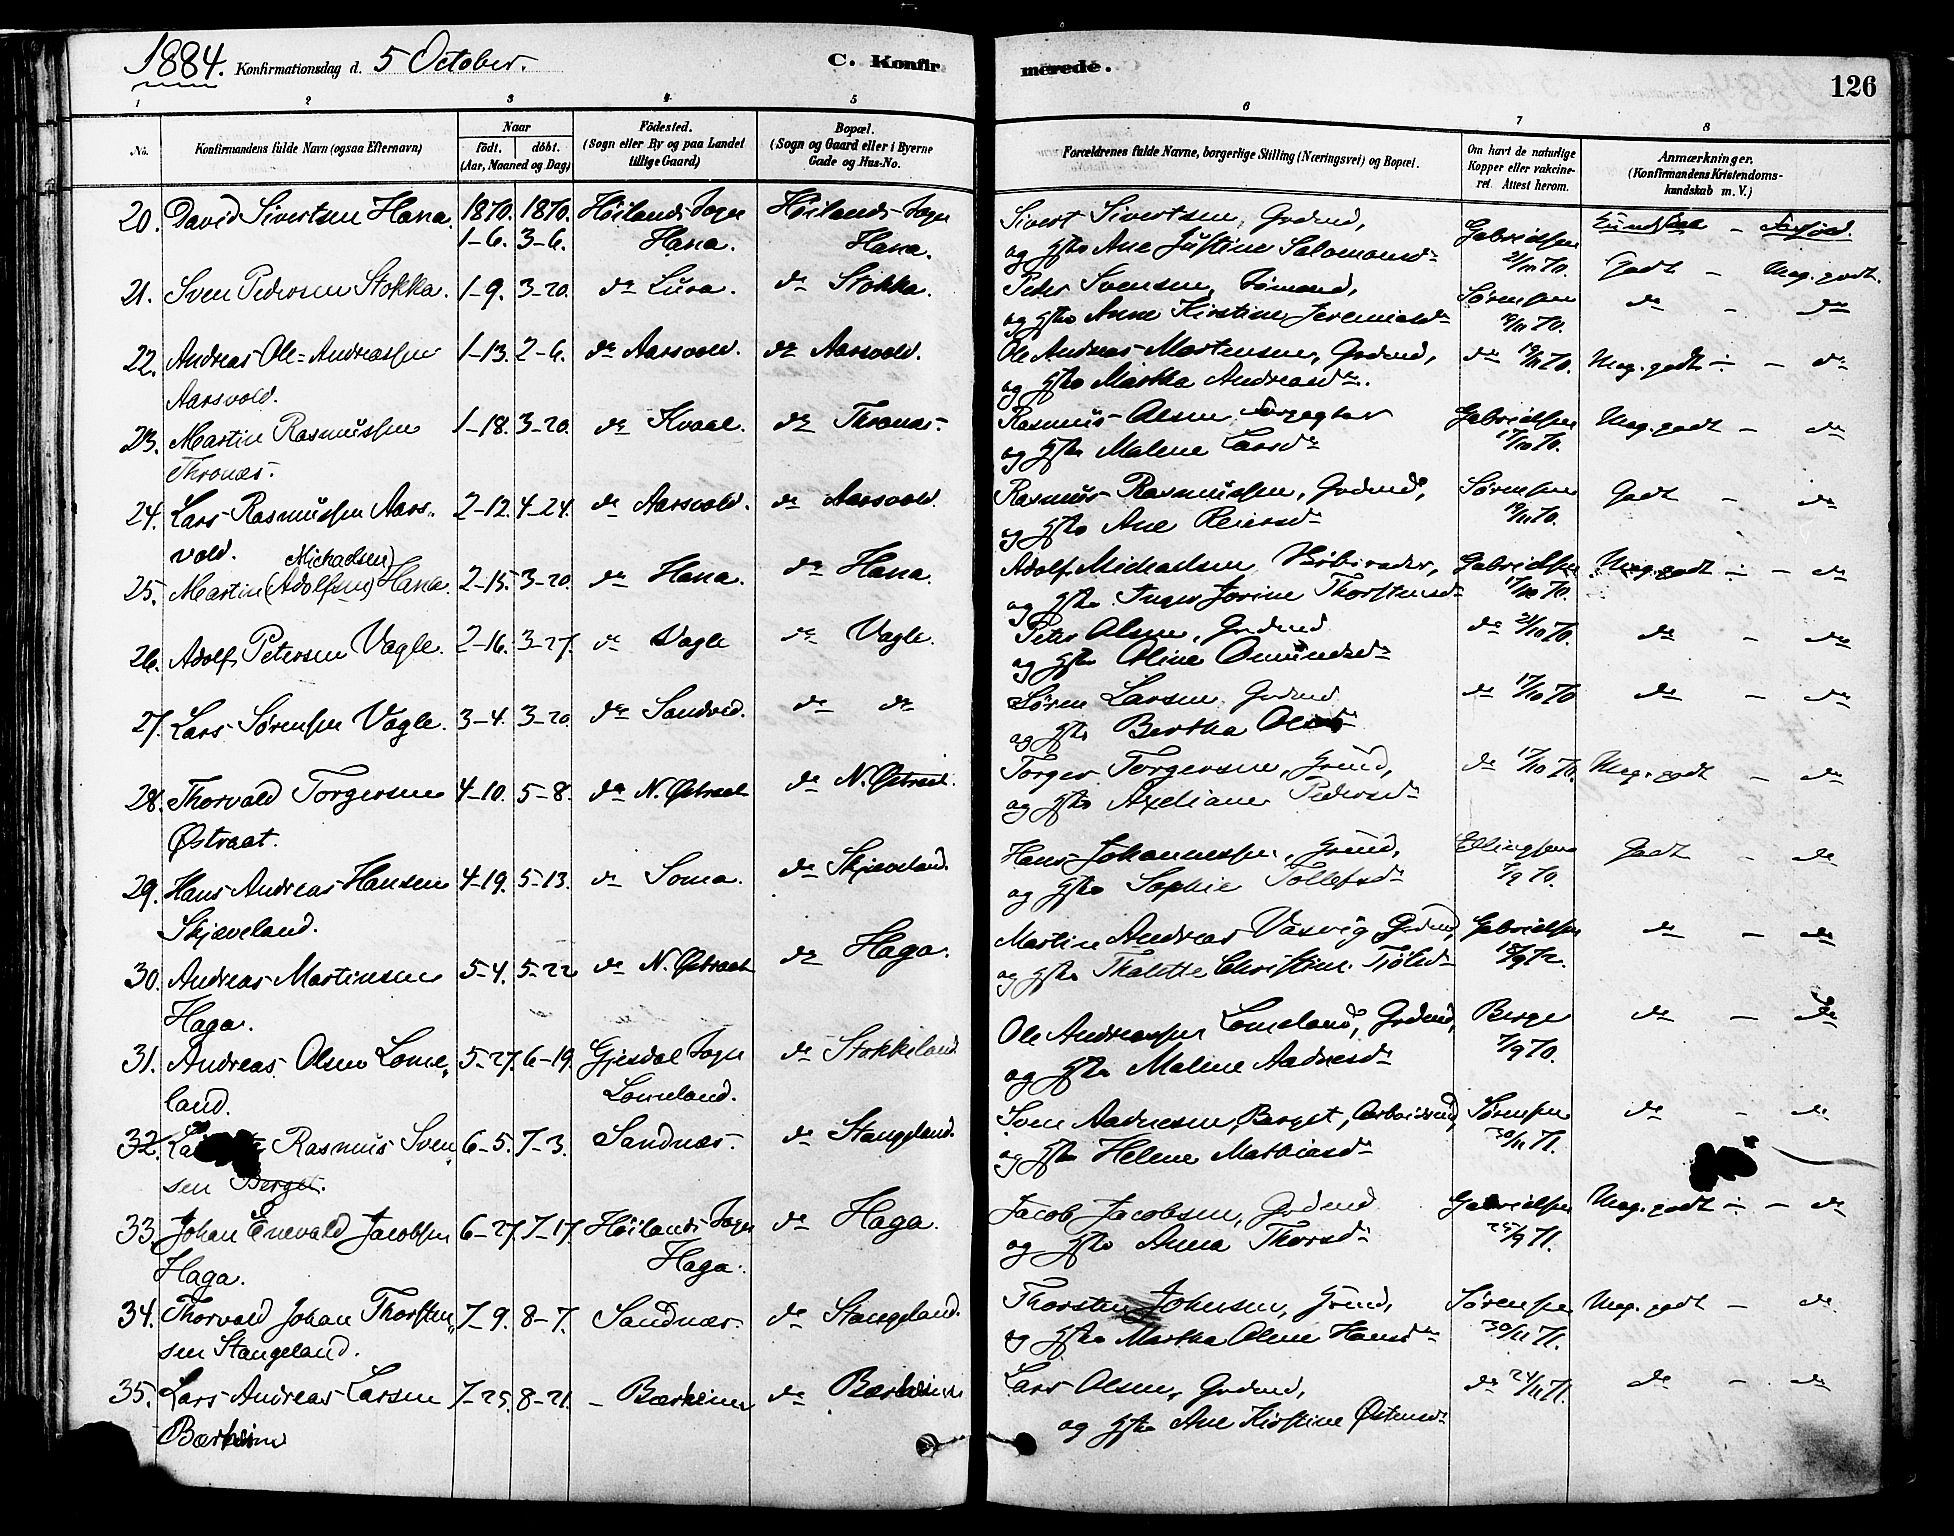 1884. Konfirmationsdag d. 5 October. C. Konfirmerede. 126
1 2 3 4 5 6 7 8
No. Konfirmandens fulde Navn (ogsaa Efternavn) Naar födt. döbt. (Aar, Maaned og Dag) Födested. (Sogn eller By og paa Landet tillige Gaard) Bopæl. (Sogn og Gaard eller i Byerne Gade og Hus-No. Forældrenes fulde Navne, borgerlige Stilling (Næringsvei) og Bopæl. Om havt de naturlige Kopper eller vakcineret. Attest herom. Anmærkninger. (Konfirmandens Kristendomskundskab m. V.)
20. David Sivertsen Hana. 1870. 1870. Höilands Sogn Höilands Sogn Sivert Sivertsen, Grdmd, Gabrielsen
1-6. 3-6. Hana. Hana. og Hstr Ane Justine Salomonsd. 21/10 70. Godt - Meg. godt.
21. Sven Pedersen Stokka. 1-9. 3-20. do Lura. do Stokka. Peder Svensen, Sömand, Sörensen do - do
og Hstr Anne Kirstine Jeremiasd. 19/11 70.
22. Andreas Ole Andreassen 1-13. 2-6. do Aarsvold. do Aarsvold. Ole Andreas Mortensen, Grdmd, do 19/11 70. Meg. godt - do
Aarsvold. og Hstr Martha Andreasd.
23. Martin Rasmussen 1-18. 3-20. do Kvaal. do Thronæs. Rasmus Olsen, Gabrielsen Meg. godt - do
Thronæs. og Hstr Malene Larsd. 17/10 70.
24. Lars Rasmussen Aars- 2-12. 4-24. do Aarsvold. do Aarsvold. Rasmus Rasmussen, Grdmd, Sörensen Godt - do
vold. og Hstr Ane Reiersd. 19/11 70.
Michaelsen)
25. Martin (Adolfsen) Hana. 2-15. 3-20. do Hana. do Hana. Adolf Michaelsen Gabrielsen Meg. godt - do
og Hstr Inger Jorine Thorstensd. 17/10 70.
26. Adolf Petersen Vagle. 2-16. 3-27. do Vagle do Vagle. Peter Olsen, Grdmd do 21/10 70. do - do
og Hstr Oline Omundsd.
27. Lars Sörensen Vagle. 3-4. 3-20. do Sandved. do do Sören Larsen, Grdmd do 17/10 70 do - do
og Hstr Bertha Olsd.
28. Thorvald Torgersen 4-10. 5-8. do N. Østraat do N. Østraat. Torger Torgersen, Grmd, do 17/10 70. Meg. godt - do
Østraat. og Hstr Axeliane Pedersd.
29. Hans Andreas Hansen 4-19. 5-13. do Soma. do Skjæveland. Hans Johannessen, Grmd, Ellingsen Godt - do
Skjæveland. og Hstr Sophie Tollefsd. 7/9 70.
30. Andreas Martinsen 5-4. 5-22 do N. Østraat do Haga. Martin Andreas Vasvig Grdmd, Gabrielsen do - do
Haga. og Hstr Thalette Christine 18/9 72.
31. Andreas Olsen Lome- 5-27. 6-19. Gjesdal Sogn do Stokkeland. Ole Andreassen Lomeland, Grdmd, Berge do - do
land. Lomeland. og Hstr Malene Aadnesd. 7/9 70.
32. Rasmus Sven- 6-5. 7-3. Sandnæs. do Stangeland. Sven Aadnesen Berget, Arbeidsmd, Sörensen do - do
sen Berget. og Hstr Helene Mathiasd. 30/11 71.
33. Johan Enevald Jacobsen 6-27. 7-17. Höilands Sogn do Haga. Jacob Jacobsen, Grdmd Gabrielsen Meg. godt - do
Haga. Haga. og Hstr Anna Thorsd. 25/9 71.
34. Thorvald Johan Thorsten- 7-9. 8-7. Sandnæs do Stangeland. Thorsten Johnsen, Grmd, Sörensen Meg. godt - do
sen Stangeland. og Hstr Martha Oline Hansd. 30/11 71.
35. Lars Andreas Larsen 7-25. 8-21. - Bærheim do Bærheim Lars Olsen, Grdmd, do 24/11 71. do - do
Bærheim og Hstr Ane Kirstine Østensd.